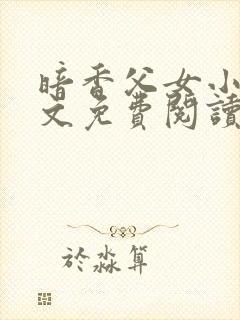 暗香父女小
文免費閱讀
於淼算